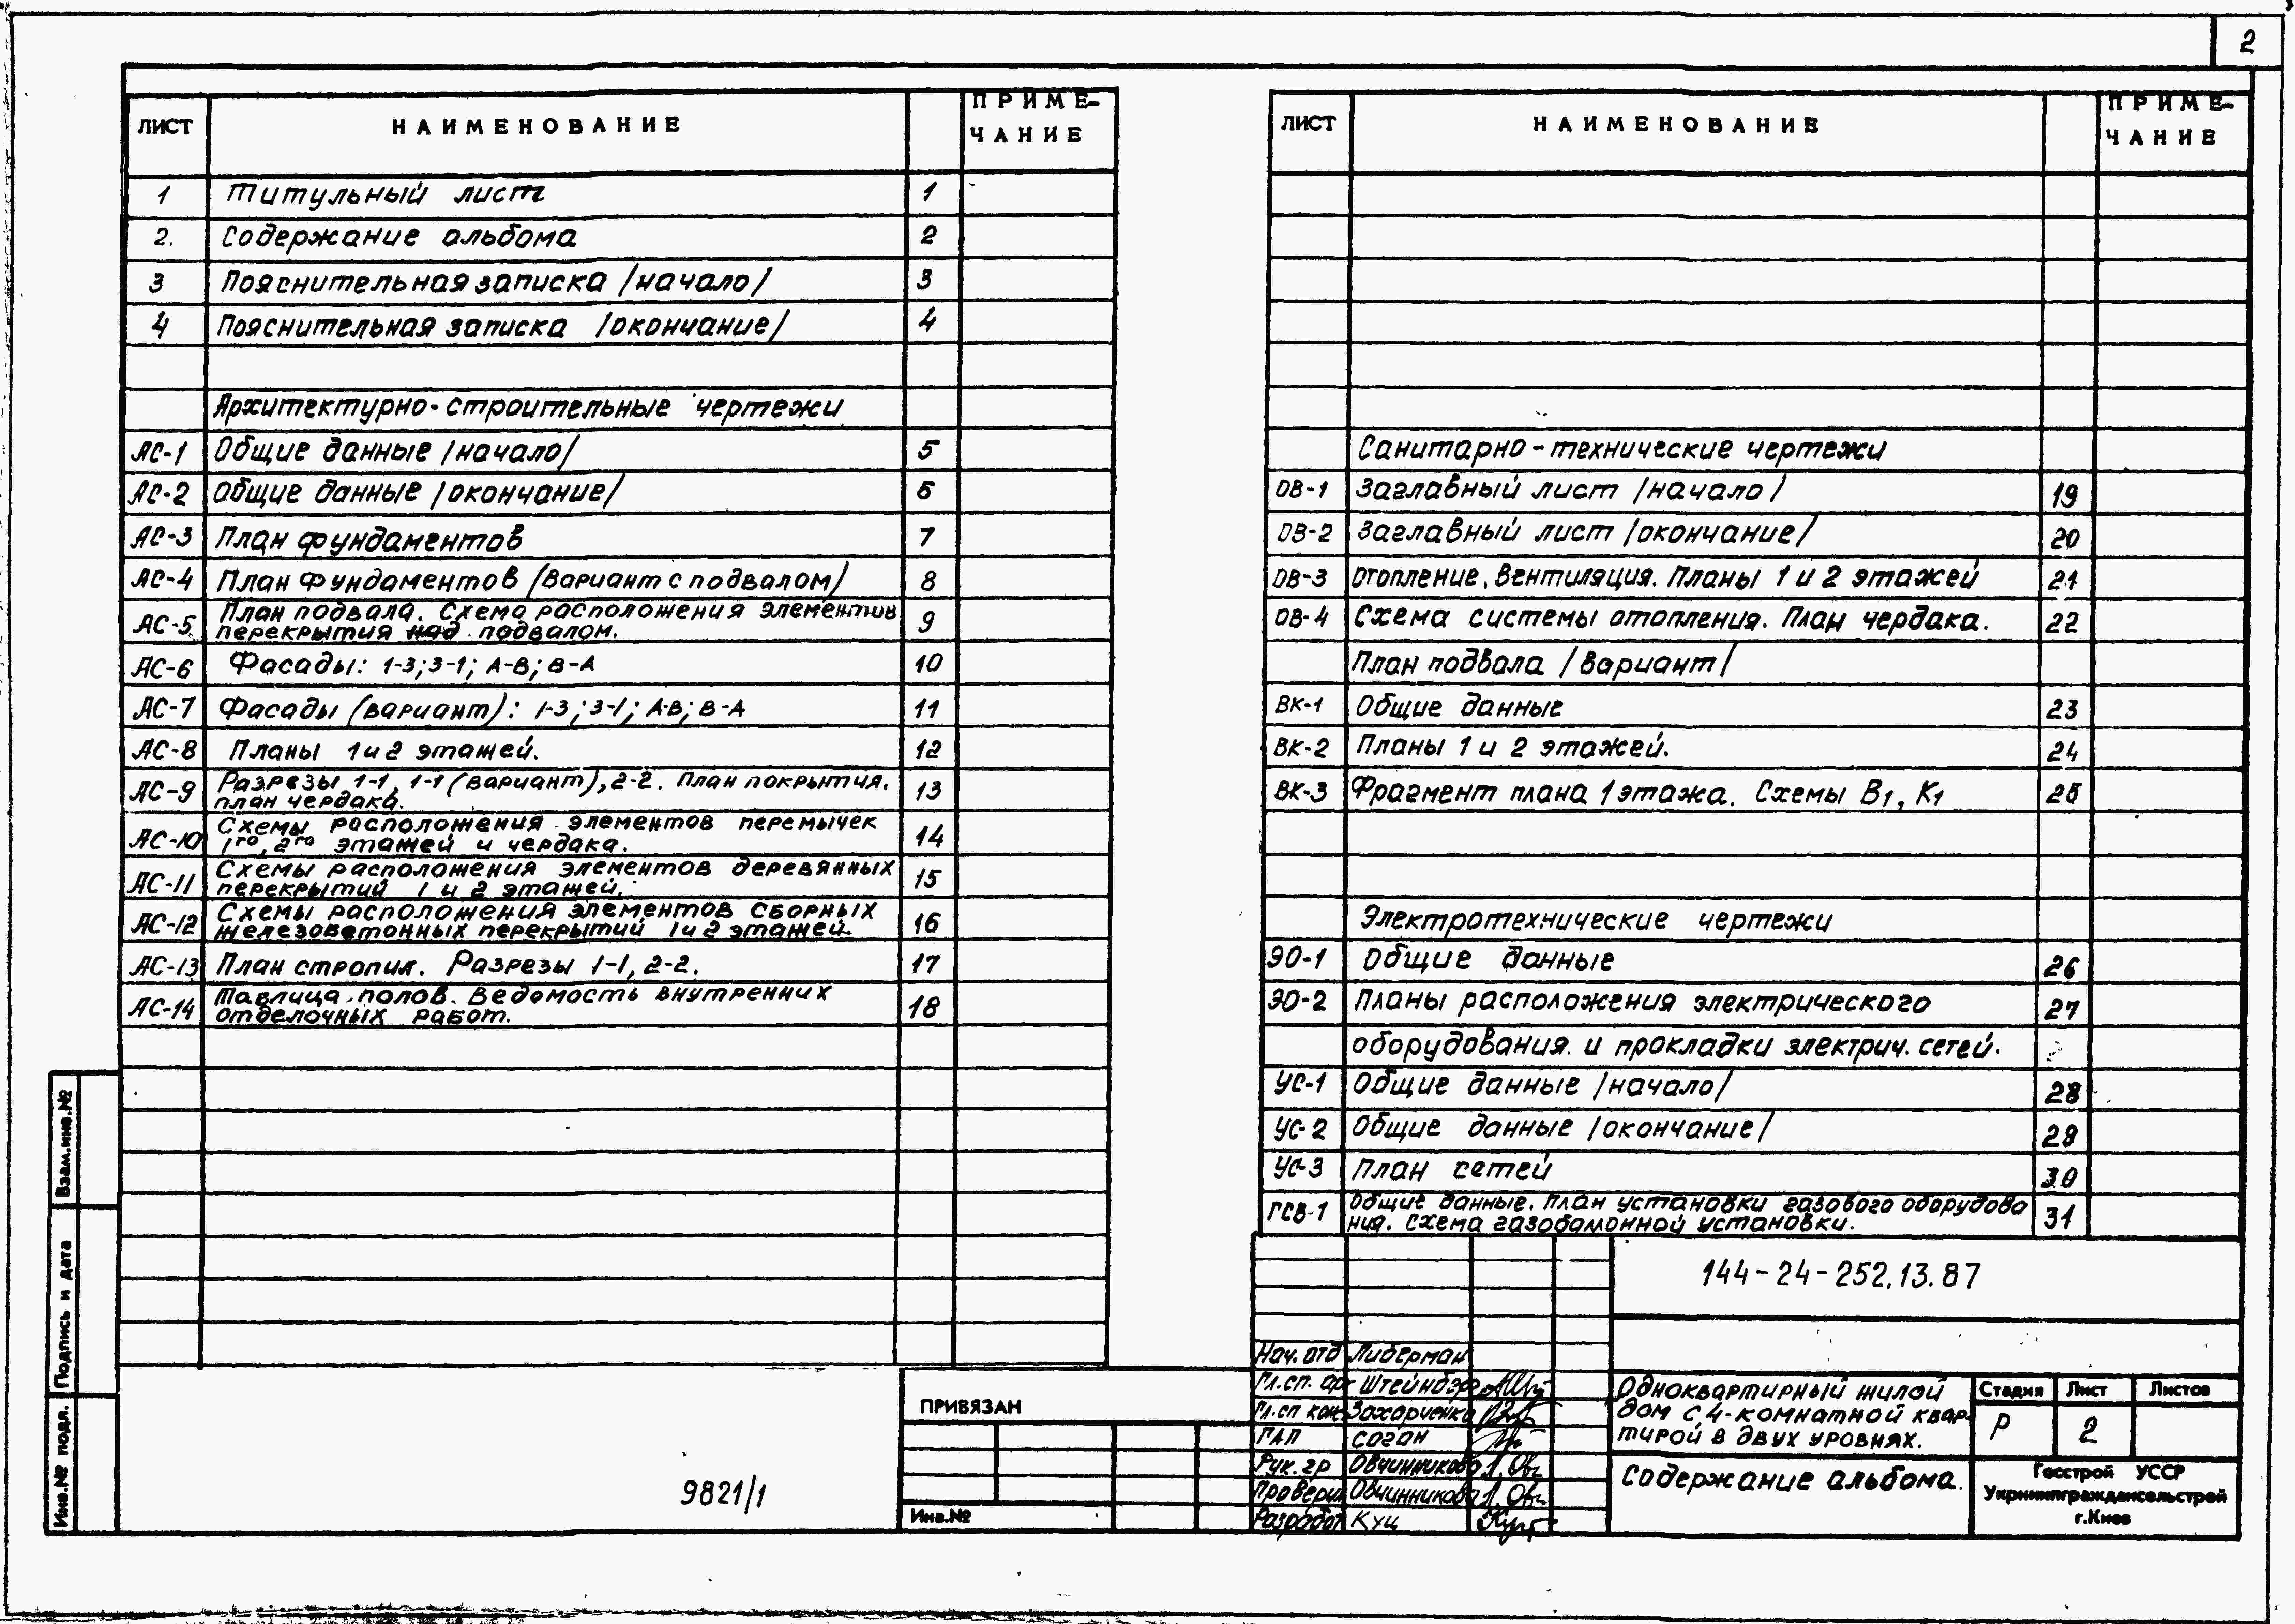 2
ЛИСТ НАИМЕНОВАНИЕ ПРИМЕ-
ЧАНИЕ
1 Титульный лист 1
2. Содержание альбома 2
3 Пояснительная записка /начало/ 3
4 Пояснительная записка /окончание/ 4
Архитектурно-строительные чертежи
АС-1 Общие данные /начало/ 5
АС-2 Общие данные /окончание/ 6
АС-3 План фундаментов 7
АС-4 План фундаментов (вариант с подвалом) 8
АС-5 План подвала. Схема расположения элементов
перекрытия над подвалом. 9
АС-6 Фасады: 1-3; 3-1; А-В; В-А 10
АС-7 Фасады (вариант): 1-3; 3-1; А-В; В-А 11
АС-8 Планы 1 и 2 этажей. 12
АС-9 Разрезы 1-1, 1-1 (вариант), 2-2. План покрытия.
план чердака. 13
АС-10 Схемы расположения элементов перемычек
1го, 2го этажей и чердака. 14
АС-11 Схемы расположения элементов деревянных
перекрытий 1 и 2 этажей. 15
АС-12 Схемы расположения элементов сборных
железобетонных перекрытий 1 и 2 этажей. 16
АС-13 План стропил. Разрезы 1-1, 2-2. 17
АС-14 Таблица полов. Ведомость внутренних
отделочных работ. 18
ЛИСТ НАИМЕНОВАНИЕ ПРИМЕ-
ЧАНИЕ
Санитарно-технические чертежи
ОВ-1 Заглавный лист /начало/ 19
ОВ-2 Заглавный лист /окончание/ 20
ОВ-3 Отопление. Вентиляция. Планы 1 и 2 этажей 21
ОВ-4 Схема системы отопления. План чердака. 22
План подвала /вариант/
ВК-1 Общие данные 23
ВК-2 Планы 1 и 2 этажей. 24
ВК-3 Фрагмент плана 1 этажа. Схемы В1, К1 25
Электротехнические чертежи
ЭО-1 Общие данные 26
ЭО-2 Планы расположения электрического 27
оборудования и прокладки электрич. сетей.
УС-1 Общие данные /начало/ 28
УС-2 Общие данные /окончание/ 29
УС-3 План сетей 30
ГСВ-1 Общие данные. План установки газового оборудова
ния. Схема газобалонной установки. 31
144-24-252.13.87
Нач. отд Либерман
Гл. сп. арх Штейнберг
Гл. сп кон. Захарченко
ГАП Саган
Рук. гр Овчинникова
Проверил Овчинникова
Разработ Куц
Одноквартирный жилой
дом с 4-комнатной квар-
тирой в двух уровнях.
Стадия Лист Листов
Р 2
Содержание альбома.
Госстрой УССР
Укрниипграждансельстрой
г. Киев
ПРИВЯЗАН
Инв.№
9821/1
Взам.инв.№
Подпись и дата
Инв.№ подл.